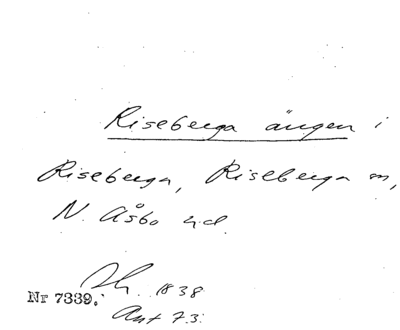 Riseberga ängen i
Riseberga, Riseberga sn,
N. Åsbo hd.
Sk. 1838
Nr 7339.
Ant 73.